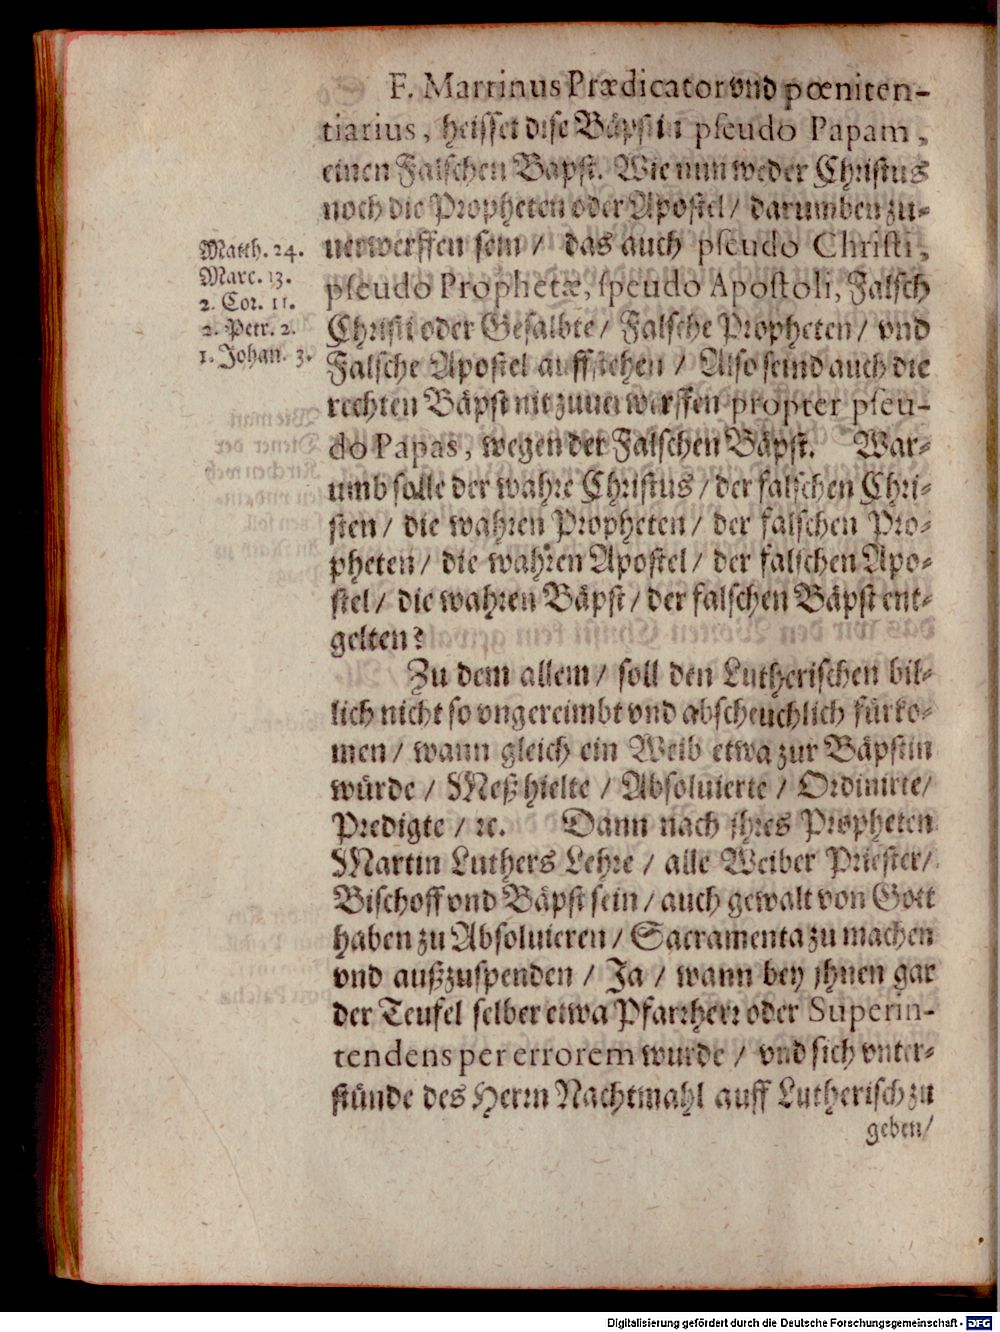 F. Martinus Prædicator vnd pœniten-
tiarius, heisset dise Bäpstin pseudo Papam,
einen Falschen Bapst. Wie nun weder Christus
noch die Propheten oder Apostel / darumben zu-
uerwerffen sein / das auch pseudo Christi,
pseudo Prophetæ, speudo Apostoli, Falsch
Christi oder Gesalbte / Falsche Propheten / vnd
Falsche Apostel auffstehen / Also seind auch die
rechten Bäpst nit zuuerwerffen propter pseu-
do Papas, wegen der Falschen Bäpst. War-
umb solle der wahre Christus / der falschen Chri-
sten / die wahren Propheten / der falschen Pro-
pheten / die wahren Apostel / der falschen Apo-
stel / die wahren Bäpst / der falschen Bäpst ent-
gelten?
Matth. 24.
Marc. 13.
2. Cor. 11.
2. Petr. 2.
1. Johan. 3.
Zu dem allem / soll den Lutherischen bil-
lich nicht so vngereimbt vnd abscheuchlich fürko-
men / wann gleich ein Weib etwa zur Bäpstin
würde / Meß hielte / Absoluierte / Ordinirte /
Predigte / ꝛc. Dann nach jhres Propheten
Martin Luthers Lehre / alle Weiber Priester /
Bischoff vnd Bäpst sein / auch gewalt von Gott
haben zu Absoluieren / Sacramenta zu machen
vnd außzuspenden / Ja / wann bey jhnen gar
der Teufel selber etwa Pfarrherr oder Superin-
tendens per errorem wurde / vnd sich vnter-
stünde des Herrn Nachtmahl auff Lutherisch zu
geben /
Digitalisierung gefördert durch die Deutsche Forschungsgemeinschaft - DFG